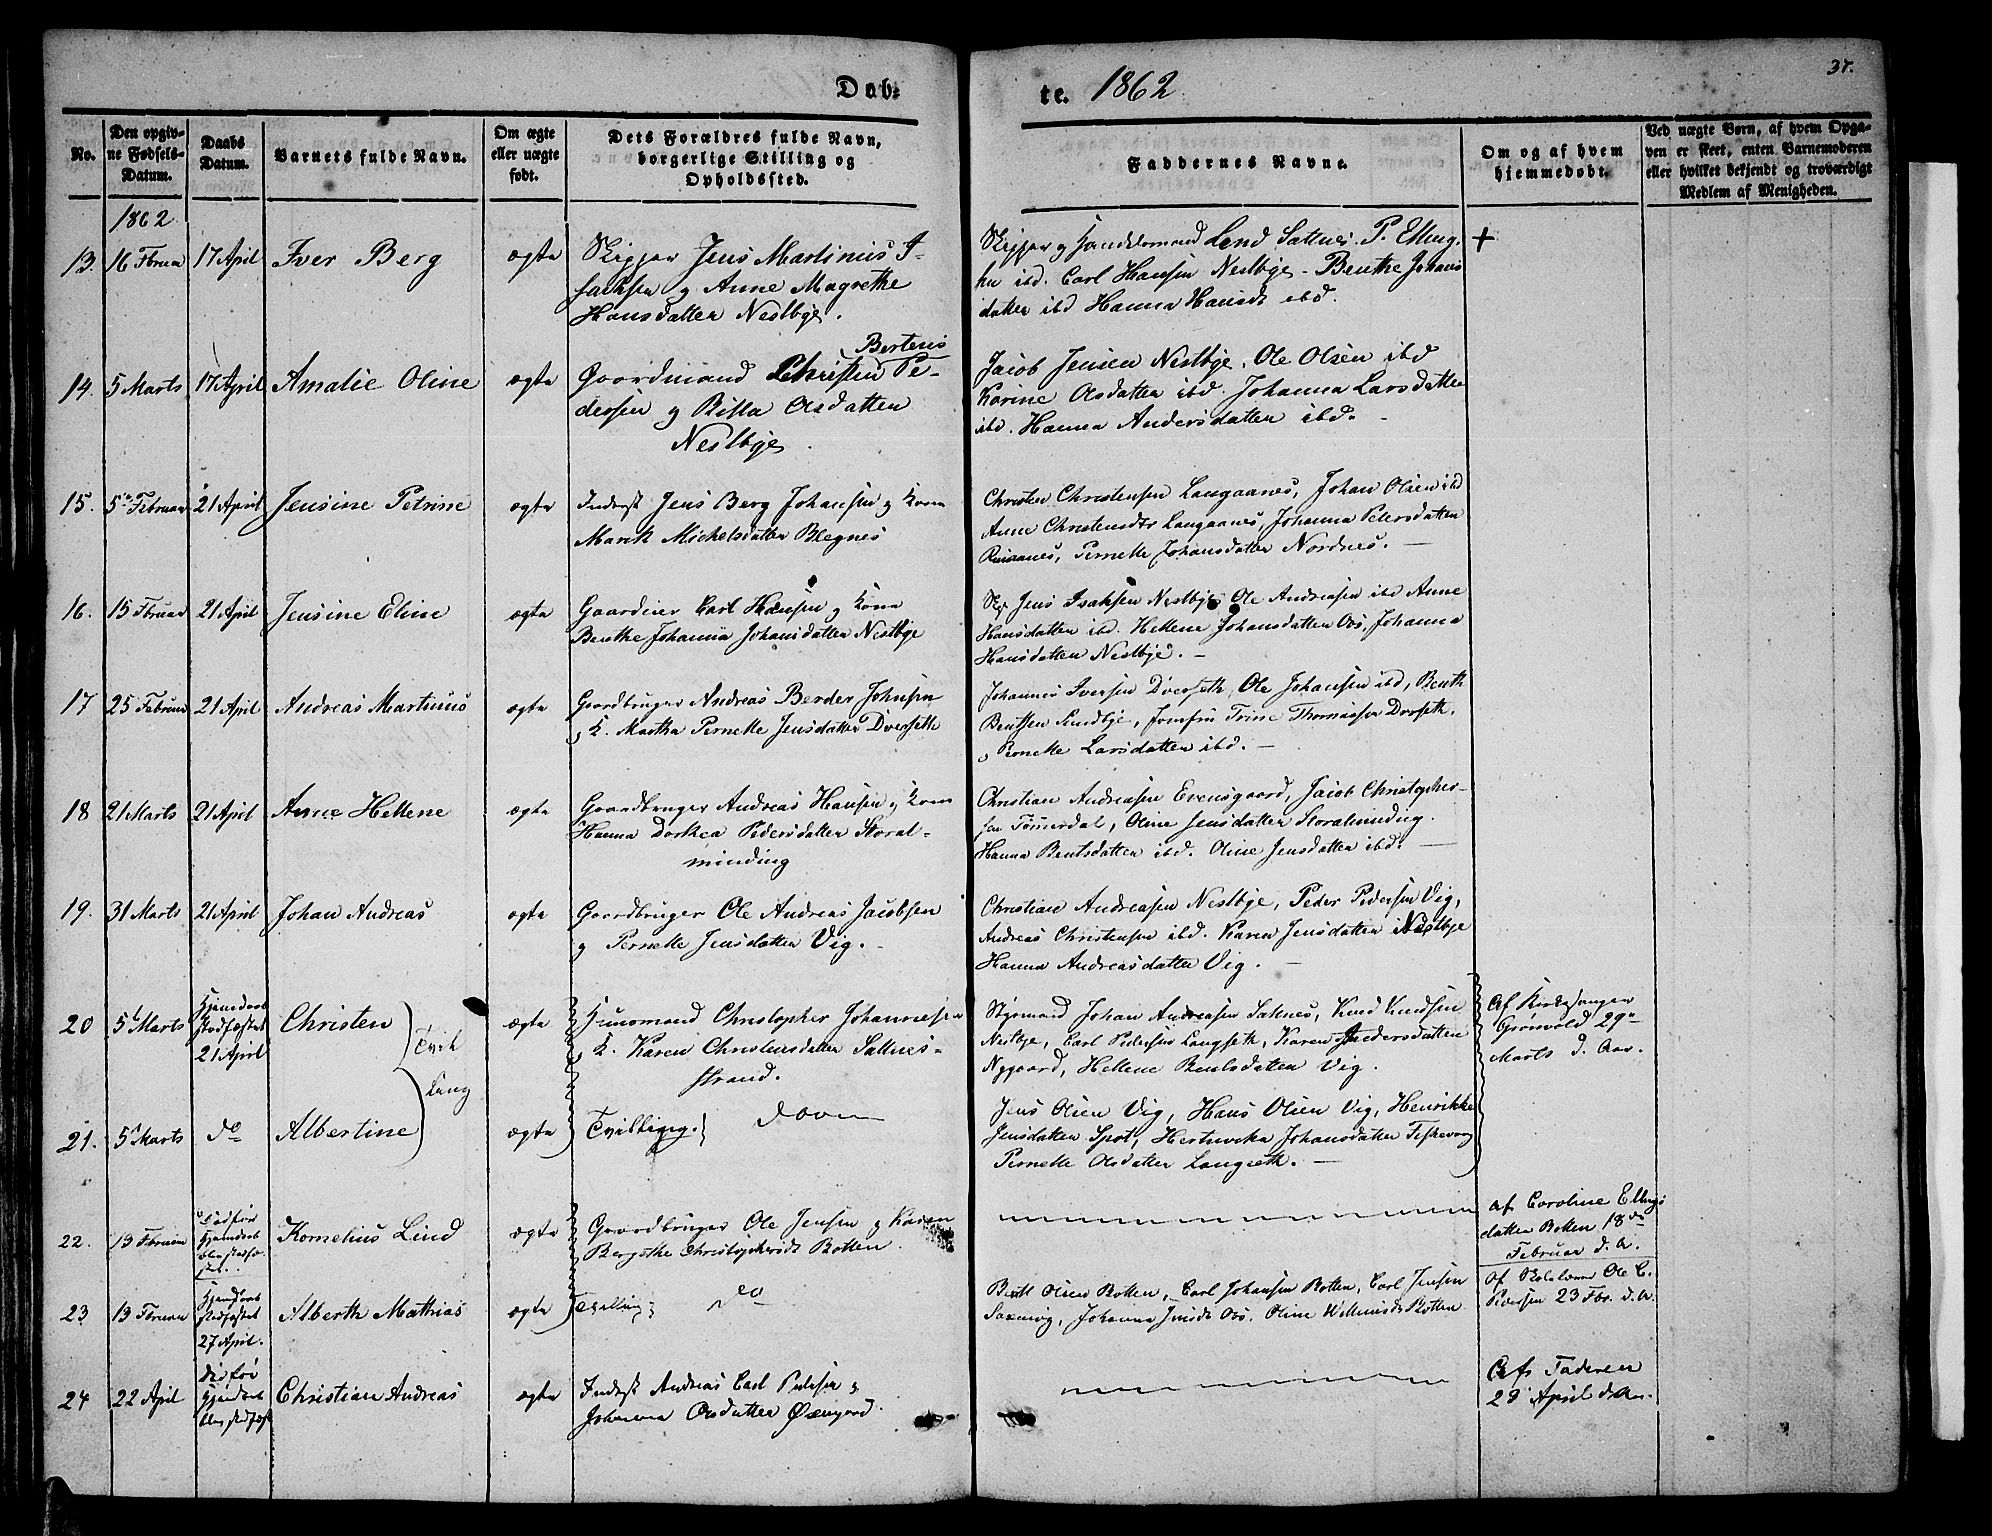 Døb-
te. 1862
37.
No.
Den opgiv-
ne Fødsels-
Datum.
Daabs
Datum.
Barnets fulde Navn.
Om ægte
eller uægte
født.
Dets Forældres fulde Navn,
borgerlige Stilling og
Opholdssted.
Faddernes Navne.
Om og af hvem
hjemmedøbt.
Ved uægte Børn, af hvem Opga-
ven er skeet, enten Barnemoderen
eller hvilket bekjendt og troværdigt
Medlem af Menigheden.
1862
13. 16 Februar 17 April Iver Berg ægte
Skipper Jens Martinus I-
sachsen og Anne Magrethe
Hansdatter Nestbye.
Skipper og Handelsmand Lind Saltnes. P. Elling-
sen ibd. Carl Hansen Nestbye - Benthe Johans
datter ibd Hanna Hansdt ibd.
+
14. 5 Marts 17 April Amalie Oline ægte
Berteus
Gaardmand Christen Pe-
dersen og Billa Olsdatter
Nestbye.
Jacob Jensen Nestbye, Ole Olsen ibd
Karine Olsdatter ibd. Johanna Larsdatter
ibd. Hanna Andersdatter ibd.
15. 5te Februar 21 April Jensine Petrine ægte
Inderst Jens Berg Johansen og Kone
Marit Michelsdatter Blegnes
Christen Christensen Langaanes, Johan Olsen ibd
Anne Christensdtr Langaanes, Johanna Petersdatter
Pernelle Johansdatter Nordnes.
16. 15 Februar 21 April Jensine Eline ægte
Gaardeier Carl Hansen og Kone
Benthe Johanna Johansdatter Nestbye
Sk. Jens Isaksen Nestbye Ole Andreasen ibd Anne
Hansdatter ibd. Hellene Johansdatter Os, Johanna
Hansdatter Nestbye.
17 25 Februar 21 April Andreas Martinus ægte
Gaardbruger Andreas Berder Johnsen
og K. Martha Pernelle Jensdatter Dverseth
Johannes Iversen Dverseth, Ole Johansen ibd, Benth
Bentsen Sundbye, Jomfru Trine Thomassen Dverseth,
og Pernelle Larsdatter ibd.
18 21 Marts 21 April Anne Hellene ægte
Gaardbruger Andreas Hansen og Kone
Hanna Dorthea Pedersdatter Storal-
minding
Christian Andreasen Evensgaard, Jacob Christopher-
sen Tømerdal, Oline Jensdatter Storalminding.
Hanna Bentsdatter ibd. Oline Jensdatter ibd.
19. 31 Marts 21 April Johan Andreas ægte
Gaardbruger Ole Andreas Jacobsen
og Pernelle Jensdatter Vig.
Christian Andreasen Nestbye, Peder Pedersen Vig,
Andreas Christensen ibd. Karen Jensdatter Nestbye
Hanna Andreasdatter Vig.
20 5 Marts Hjemdøbt
Stadfæstet
21 April
Christen ægte
Tvil
ling
Huusmand Christopher Johannesen
og K. Karen Christensdatter Saltnes-
strand.
Styrmand Johan Andreasen Saltnes, Knud Knudsen
Nestbye, Carl Pedersen Langseth, Karen Andersdatter
Nygaard, Hellene Bentsdatter Vig.
Af Kirkesanger
Grønvold 29
Marts d. Aar.
21. 5 Marts do Albertine ægte
Tvillinger.
Jens Olsen Vig, Hans Olsen Vig, Henrikke
Jensdatter Spot, Johansdatter
Pernelle Olsdatter Langseth.
22. 13 Februar Død før
Hjemdøbt
blev stadfæ-
stet.
Kornelius Lind ægte
Gaardbruger Ole Jensen og Karen
Bergithe Christophersdt Botten.
af Caroline Ellings
datter Botten 18de
Februar d. A.
23 13 Februar Hjemdøbt
Stadfæstet
27 April.
Alberth Mathias ægte
Tvilling do
Bertl Olsen Botten, Carl Johansen Botten, Carl Jensen
Saxevig, Johanna Jensdt Os. Oline Willumsdt Botten
Af Skolelærer Ole C.
Pedersen 23 Fbr. d. A.
24 22 April Død før
Hjemdøbt
blev stadfæst
Christian Andreas ægte
Inderst Andreas Carl Pedersen og
Johanna Olsdatter Øxengard.
Af Faderen
29 April d. A.